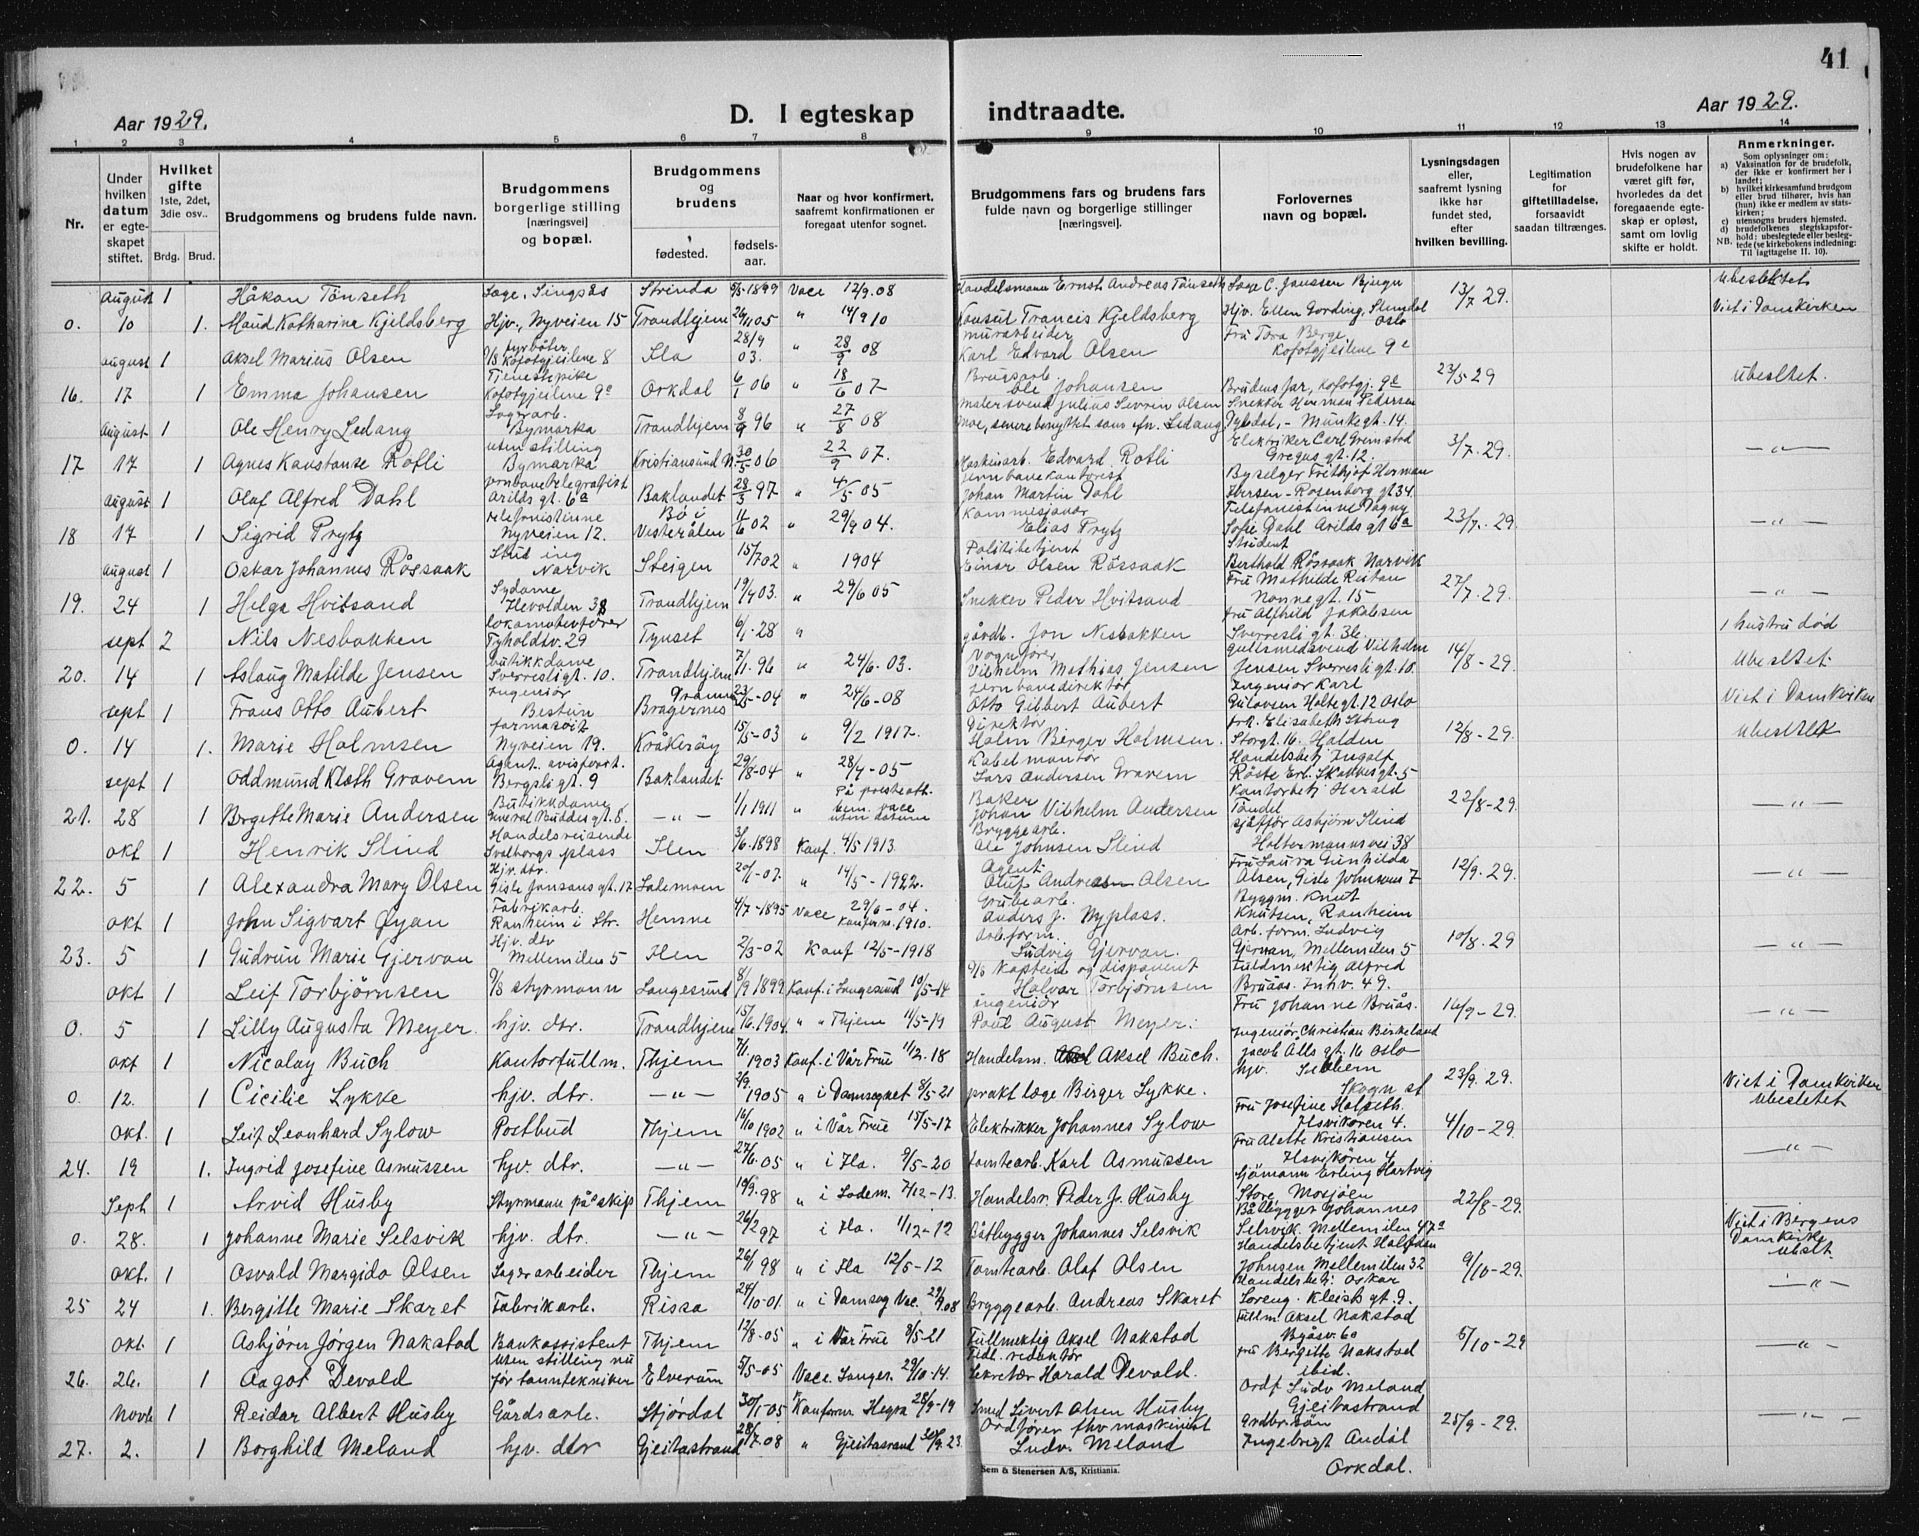 41
Aar 1929.
D. I egteskap indtraadte.
Aar 1929.
1 2 3 4 5 6 7 8 9 10 11 12 13 14
Nr.
Under hvilken datum er egteskapet stiftet.
Hvilket gifte 1ste, 2det, 3die osv..
Brdg. Brud.
Brudgommens og brudens fulde navn.
Brudgommens borgerlige stilling [næringsvei] og bopæl.
Brudgommens og brudens
fødested. fødselsaar.
Naar og hvor konfirmert, saafremt konfirmationen er foregaat utenfor sognet.
Brudgommens fars og brudens fars fulde navn og borgerlige stillinger [næringsvei].
Forlovernes navn og bopæl.
Lysningsdagen eller, saafremt lysning ikke har fundet sted, efter hvilken bevilling.
Legitimation for giftetilladelse, forsaavidt saadan tiltrænges.
Hvis nogen av brudefolkene har været gift før, hvorledes da det foregaaende egteskap er opløst, samt om lovlig skifte er holdt.
Anmerkninger.
Som oplysninger om:
a) Vaksination for de brudefolk, der ikke er konfirmert her i landet;
b) hvilket kirkesamfund brudgom eller brud tilhører, hvis han (hun) ikke er medlem av statskirken;
c) utensogns bruders hjemsted.
d) brudefolkenes slegtskapsforhold: ubeslegtede eller beslegtede (se kirkebokens indledning: Til lagttagelse II. 10).
NB.
august 1 Håkon Tönseth Læge, Singsås Strinda 9/5-1899 Vacc 12/9.08 Handelsmann Ernst Andreas Tönseth Læge C. Janssen 13/7 29. Ubesltet
0. 10 1. Maud Katharina Kjeldsberg Hjv., Nyveien 15 Trondhjem 26/11 05 " 14/9 10 Konsul Francis Kjeldsberg Hjv. Ellen Gording, Slemdal Oslo Viet i Domkirken
august 1 Aksel Marius Olsen fyrbøter Kofotgjeilene 8 Ila 28/9 03. " 28/9 08 murarbeider Karl Edvard Olsen Fru Tora Berge Kofotgjeilene 9c
16. 17 1 Emma Johansen Tjenestepike Kofotgjeilene 9c Orkdal 6/1 06 " 18/6 07 Brugsarb. Ole Johansen Brudens far, Kofotgj. 9c 23/5 29 ubesltet.
august 1 Ole Henry Ledang Lagerarb. Bymarka Trondhjem 8/9 96 " 27/8 08 Malersvend Julius Severin Olsen Moe, senere benyttet som efn. Ledang Snekker Herman Pedersen - Munkegt. 14.
17 17 1 Agnes Konstanse Rotli uten stilling Bymarka Kristiansund N. 30/5 06 22/9 07. Maskinarb. Edvard Rotli Elektriker Carl Grimstad Gregus gt. 12. 3/7 29. - " -
august 1 Olaf Alfred Dahl jernbanetelegrafist Arilds gt. 6a Baklandet 28/3 97 " 4/5 05 jernbanekontorist Johan Martin Dahl Byselger Frithjof Herman Iversen - Rosenborg gt 34.
18 17 1 Sigrid Prytz telefonistinne Nyveien 12. Bø i Vesterålen 11/6 02 " 29/9 04. Elias Prytz Telefonistinne Dagny Sofie Dahl Arilds gt 6a 23/7. 29. - " -
august 1 Oskar Johannes Røssaak Stud ing Narvik Steigen 15/7 02 " 1904 Politibetjent Einar Olsen Røssaak Student Berthold Røssaak Narvik
19. 24 1 Helga Hvitsand Sydame Trondhjem 19/9 03. " 29/6 05 Snekker Peder Hvitsand Fru Mathilde Ristan Nonnegt. 15 27/7. 29. - " -
sept 2 Nils Nesbakken lokomotivfører Tyholdtv. 29 Tynset 6/1-28 " gårdb. Jon Nesbakken Fru Alfhild Jakobsen Sverresli gt. 36. 1 hustru död
20. 14 1 Aslaug Matilde Jensen butikkdame Sverresligt. 10. Trondhjem 7/11. 96 " 24/6-03. Vognfører Vilhelm Mathias Jensen gullsmedsvend Vilhelm Jensen Sverresligt. 10. 14/8-29. Ubesltet.
sept 1 Frans Otto Aubert Ingeniør Drammen Bragernes -04 " 24/6-08 jernbanedirektör Otto Gilbert Aubert Ingeniør Karl Gulovsen Holtegt. 12 Oslo Viet i Domkirken
0. 14 1. Marie Holmsen farmasöit Nyveien 19. Kråkeröy 15/5-03 " 9/2 1917. Direktör Holm Berger Holmsen. frk. Elisabeth Storgt. 16. Halden 12/8-29. Ubesltet
sept 1 Oddmund Kloth Gravem Agent. avisforr. Bergsligt. 9 Baklandet 29/8-04 " 28/4-05 Kabelmontör Lars Andersen Gravem Handelsbetj Ingolf Röste Erl. Skakkesgt. 5
21. 28 1 Borgette Marie Andersen Butikkdame General Buddes gt. 8. - " - 1/1 1911 " På presteatt. uten datum Baker Johan Vilhelm Andersen Kontorbetj Harald Töndel 22/8-29. - " -
okt 1 Henrik Slind Handelsreisende Svalborgs plass Ilen 3/6. 1898 Konf. 4/5 1913. Bryggearb. Ole Johnsen Slind sjåffør Asbjörn Slind Holtermannsvei 38
22. 5 1 Alexandra Mary Olsen Hjv. dtr. Gisle Jonsons gt. 17 Lademoen 20/1-07. " 14/5-1922. Agent. Oluf Andreas Olsen Fru Laura Gunhilda Olsen, Gisle Johnsons 7 12/9. 29. - " -
okt 1 John Sigvart Öyan Fabrikarb. Ranheim i Str. Hemne 4/7-1895 Vacc 29/6-04. Konfirm. 1910. Grubearb. Anders J. Nyplass. Byggm. Knut Knutsen, Ranheim
23. 5 1 Gudrun Marie Gjervan Hjv. dtr Mellemilen 5 Ilen 2/3-02 Konf 12/5-1918 Arb.form. Ludvig Gjervan. Arb. form. Ludvig Gjervan, Mellemilen 5 10/8. 29 - " -
okt 1 Leif Torbjørnsen styrmann Langesund 8/9 1899 Konf. i Langesund 10/5-14 Kaptein og disponent Halvar Torbjörnsen Fuldmektig Alfred Bruåas. Inhv. 49.
0. 5 1 Lilly Augusta Meyer. hjv. dtr. Trondhjem 15/6. 1904. " " Thjem 11/5-19 ingeniør Paul August Meyer. Fru Johanne Bruås. 16/9-29. - " -
okt 1 Nicolay Buch Kontorfullm. Thjem 7/1. 1903 Konf. i Vår Frue 1/12. 18 Handelsm. Aksel Buch. Ingeniör Christian Birkeland Jacob Ålls gt. 16 Oslo
0. 12. 1 Cicilie Lykke hjv. dtr. - " - 2/9. 1905 " i Domsognet 8/5-21 prakt læge Birger Lykke. hjv. Skogn st 23/9. 29. Viet i Domkirken Ubesltet
Okt. 1 Leif Leonhard Sylow Postbud Thjem 16/10 1902 " i Vår Frue 15/5-17 Elektrikker Johannes Sylow Fru Josefine Halseth. Ilsvikören 4. 4/10-29.
24. 19 1. Ingrid Josefine Asmussen hjv. dtr. - " - 27/6. 05 " i Ila. 9/5-20 tomtearb. Karl Asmussen Fru Alette Kristiansen Ilsvikören 4 - " -
Sept 1 Arvid Husby Styrmann på skip Thjem 19/9. 98 " i Ladem. 7/12-13. Handelsr. Peder Jr. Husby Sjömann Erling Hartvig Store, Mosjøen 22/8-29.
0. 28. 1 Johanne Marie Selsvik hjv. dtr. - " - 26/2 97 i Ila. 1/12-12 Båtbygger Johannes Selsvik Båtbygger Johannes Selsvik. Mellemilen 47a Viet i Bergens Domkirke Ubeslt.
Okt. 1 Osvald Margido Olsen Lagerarbeider Thjem 26/1 98 " i Ila 12/5-12 Tomtearb. Olaf Olsen Handelsbetjent Halfdan Johnsen Mellemilen 32 9/10-29.
25 24 1. Bergitte Marie Skaret Fabrikarb. Rissa 24/10-01. " i Domsog Vac. 29/9.08 Bryggearb. Andreas Skaret Handelsbetj. Oskar Loreng. Kleists gt. 9. - " -
Okt. 1 Asbjörn Jörgen Nakstad Bankassistent Thjem 12/8-05 " i Vår Frue 8/5-21 Fullmektig Aksel Nakstad Fullm Aksel Nakstad Byåsv. 60 5/10-29
26. 26. 1 Aagot Devold Uten stilling nu før tanntekniker Elverum 5/5-05 Vacc. Langes. 29/10-14. Tidl. redaktör Sekretær Harald Devold. fru Bergitte Nakstad ibid. - " -
Novb 1 Reidar Albert Husby Gårdsarb. Stjørdal 30/1-05 Konfirm Hegra 28/9-19 Smed Sivert Olsen Husby Ordf Ludv Meland Gjeitastrand 25/9-29. - " -
27. 2. 1 Borghild Meland hjv. dtr Gjeitastrand 28/7. 08 " Gjeitastrand 30/9. 23. Ordförer fhv maskinist Ludv. Meland Ingebrigt Andål Orkdal.
Sem & Stenersen A/S, Kristiania.